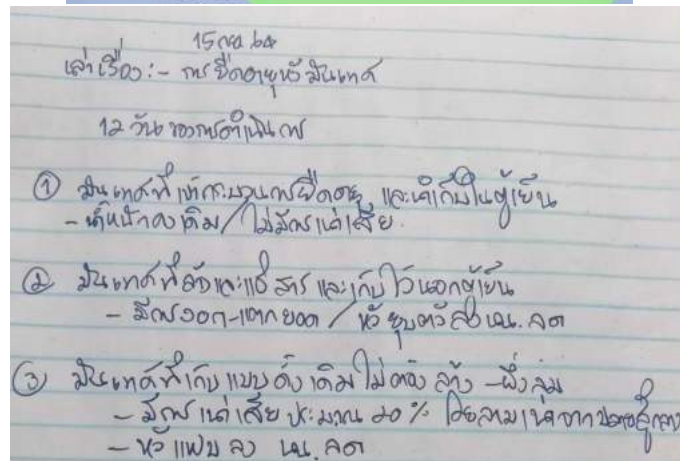 15 กค 64
เล่าเรื่อง:- การยืดอายุหัวมันเทศ
12 วัน ของการดำเนินการ
① มันเทศที่เข้ากระบวนการยืดอายุ และเก็บในตู้เย็น
- น้ำหนักคงเดิม / ไม่มีการเน่าเสีย.
② มันเทศที่ล้างและแช่สาร และเก็บไว้นอกตู้เย็น
- มีการงอก-แตกยอด / หัวยุบตัวลง นน. ลด
③ มันเทศที่เก็บแบบดั้งเดิม ไม่ต้อง ล้าง -ผึ่งลม
- มีการเน่าเสีย ประมาณ 20 % โดยลามเน่าจากปลายสู่กลาง
- หัวแฟบลง นน. ลด